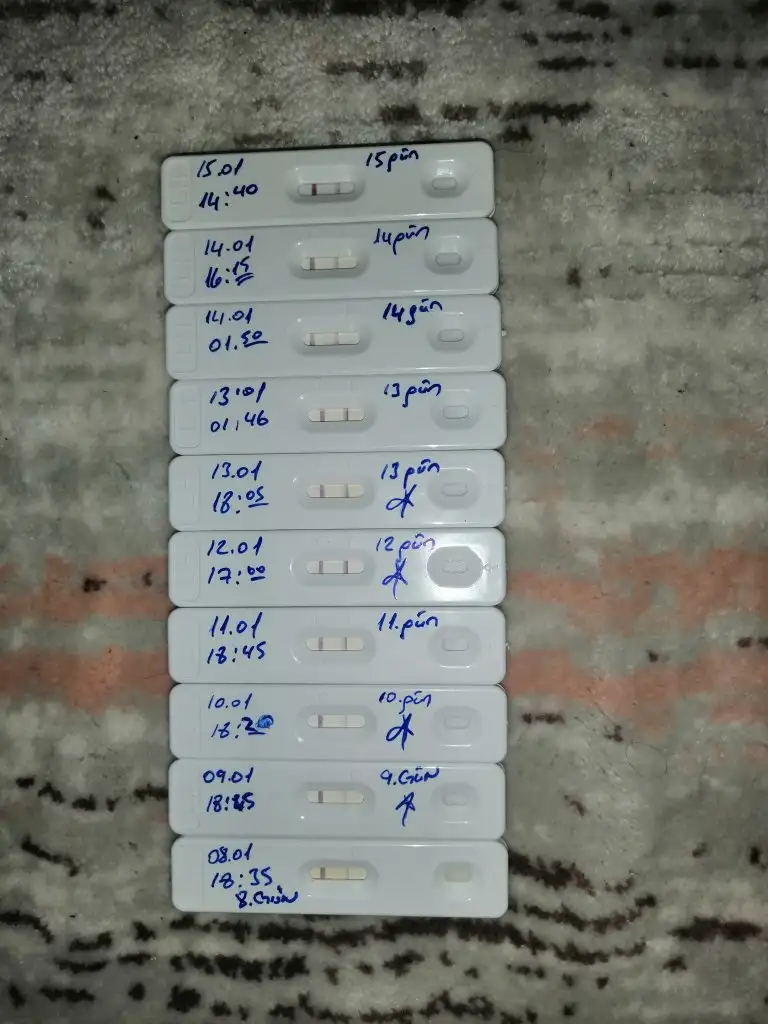 15.01
14:40
15 gün
14.01
16:15
14 gün
14.01
01.50
14 gün
13.01
01.46
13 gün
13.01
18:05
13 gün
12.01
17:00
12 gün
11.01
18:45
11.gün
10.01
10.gün
09.01
9.GÜN
08.01
18:35
8.GÜN